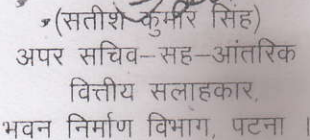 (सतीश कुमार सिंह)
अपर सचिव–सह–आंतरिक
वित्तीय सलाहकार,
भवन निर्माण विभाग, पटना ।